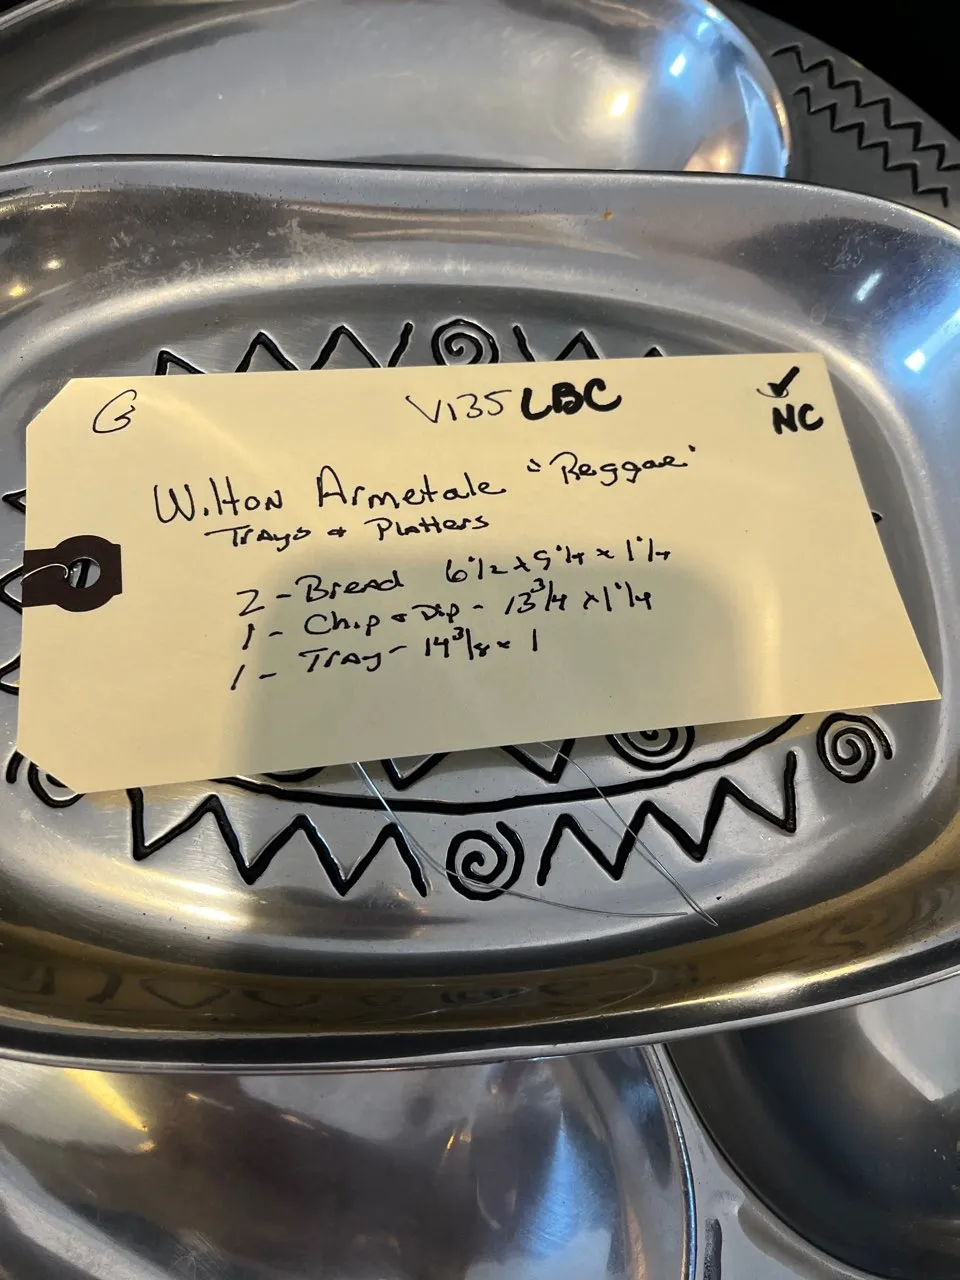 G V135 LBC ✓ NC
Wilton Armetale "Reggae"
Trays & Platters
2 - Bread 6 1/2 x 9 1/4 x 1 1/4
1 - Chip & Dip - 13 3/4 x 1 1/4
1 - Tray - 14 3/8 x 1